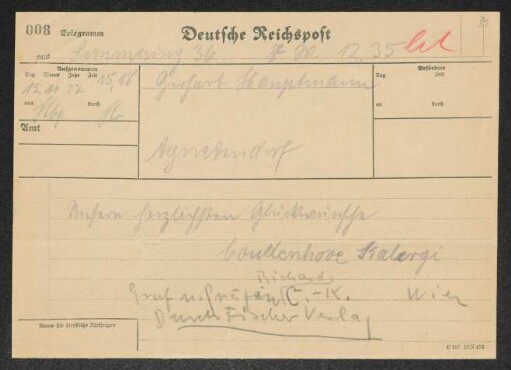 008 Telegramm Deutsche Reichspost
aus Semmering 36 12,35
Aufgenommen
Tag Monat Jahr Zeit
15.11 32 15,48
von durch
Hbg
Amt
Gerhart Hauptmann
Agnetendorf
Befördert
Tag Zeit
an durch
Unsere herzlichsten Glückwünsche
Coudenhove Kalergi
Richard
Graf u. Gräfin C.-K. Wien
Durch Fischer Verlag
Raum für dienstliche Rückfragen